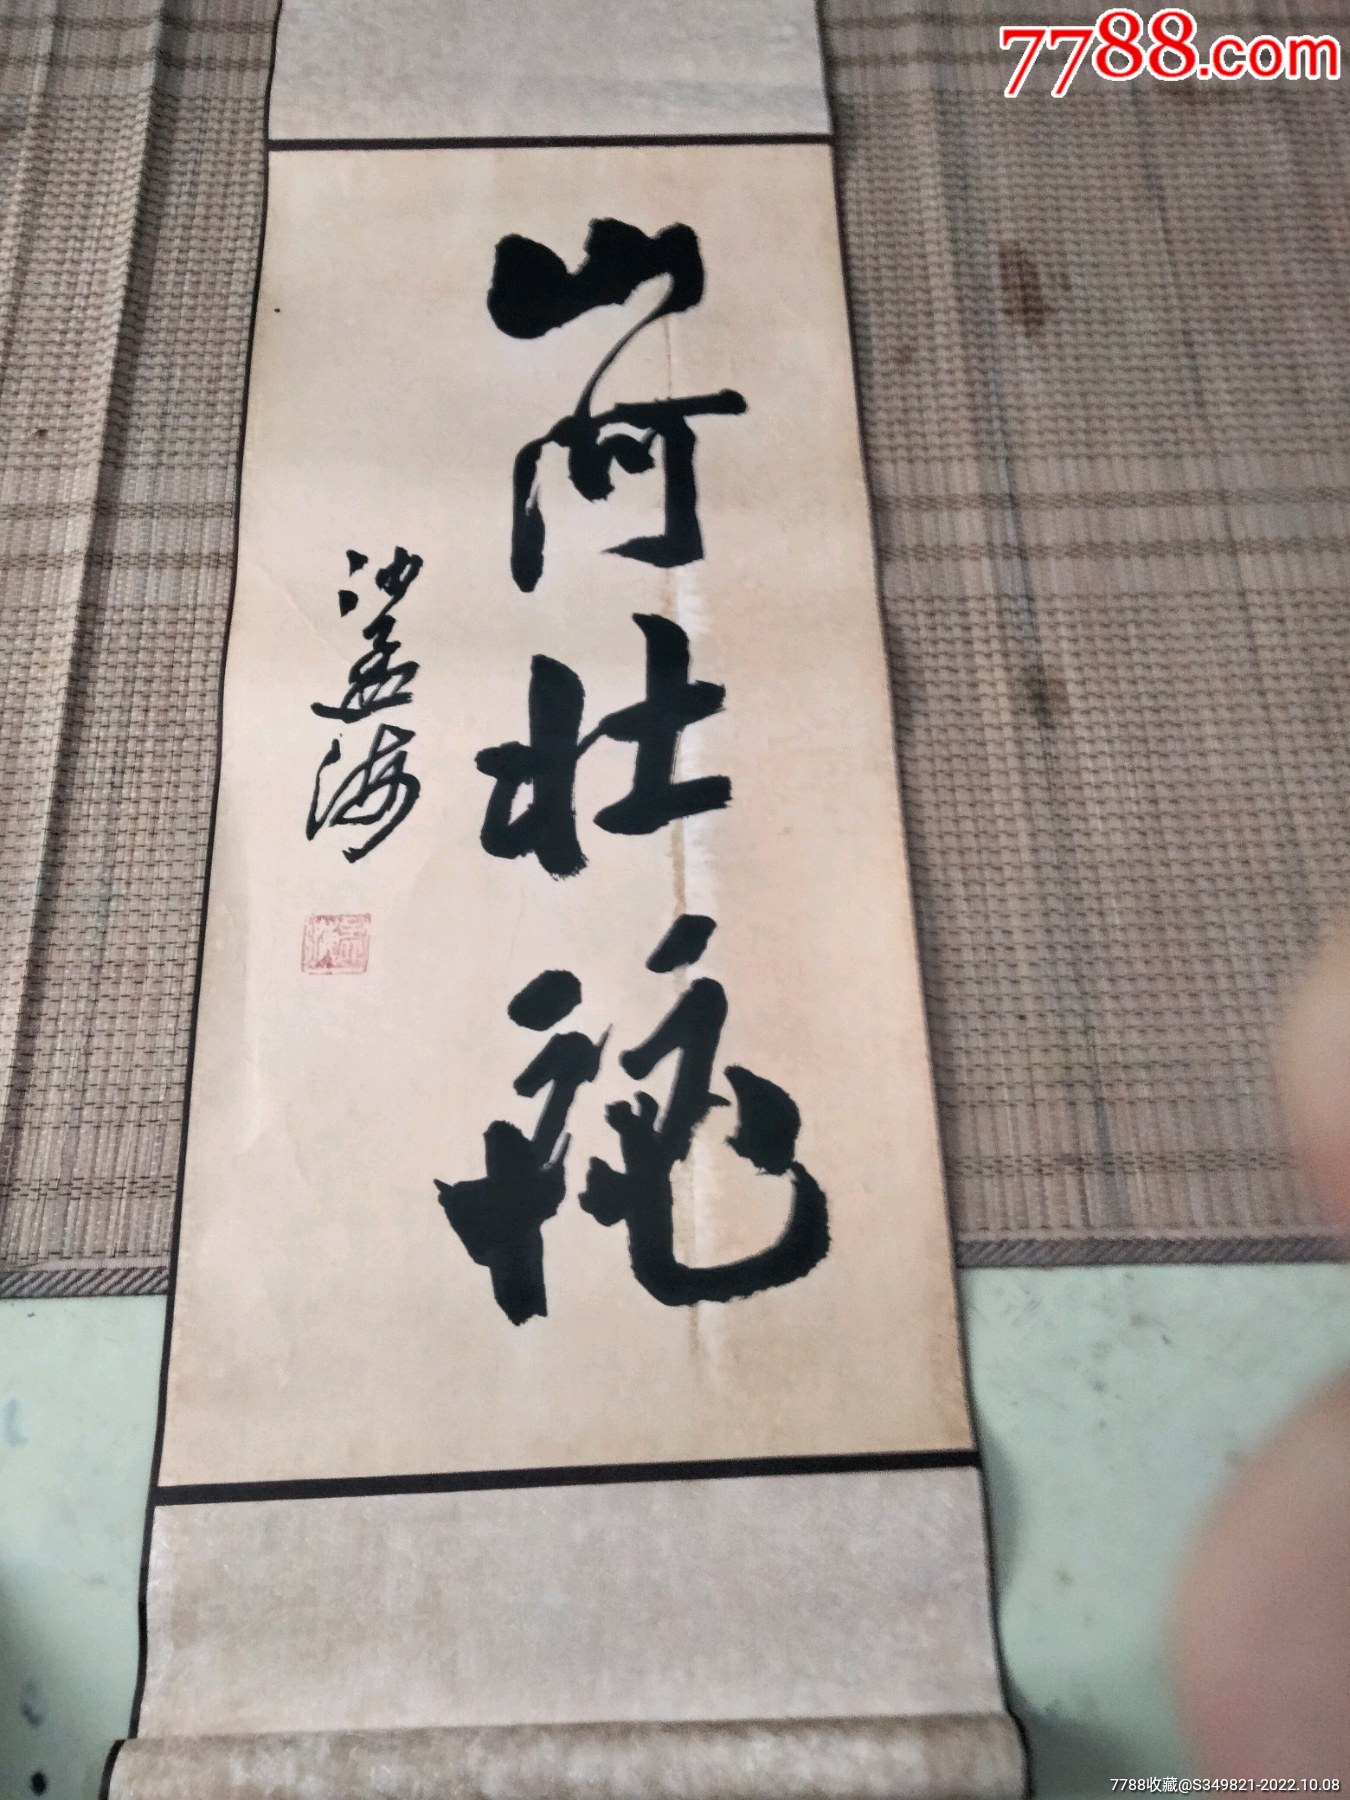 7788.com
山河壮
沙孟海
7788收藏@S349821-2022.10.08